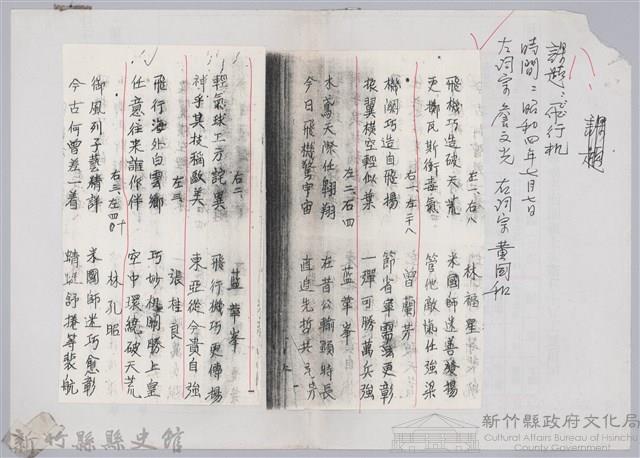 課題：飛行机
時間：昭和四年七月七日
左詞宗 詹文光 右詞宗 黃國和
左一、右八 林福星
飛機巧造破天荒 米國師逃善發揚
更擲瓦斯衝毒氣 管他敵愾任強梁
右一、左二十八 曾蘭芳
機關巧造自飛揚 節省軍需識更彰
振翼橫空輕似葉 一彈可勝萬兵強
左二、右四 藍華峯
木鳶天際任翱翔 在昔公輸顯特長
今日飛機驚宇宙 直追先哲共
右二、 藍華峯
輕氣球工方詫異 飛行機巧更傳揚
神乎其技稱歐美 東亞從今貴自強
左三、 張桂良
飛行海外白雲鄉 巧妙机關勝上皇
任意往來誰作伴 空中環繞破天荒
右三、左四十 林孔昭
御風列子藝精詳 米國師迷巧愈彰
今古何曾差一着 蜻蜓舒捲等裴航
新竹縣縣史館
新竹縣政府文化局
Cultural Affairs Bureau of Hsinchu
County Government